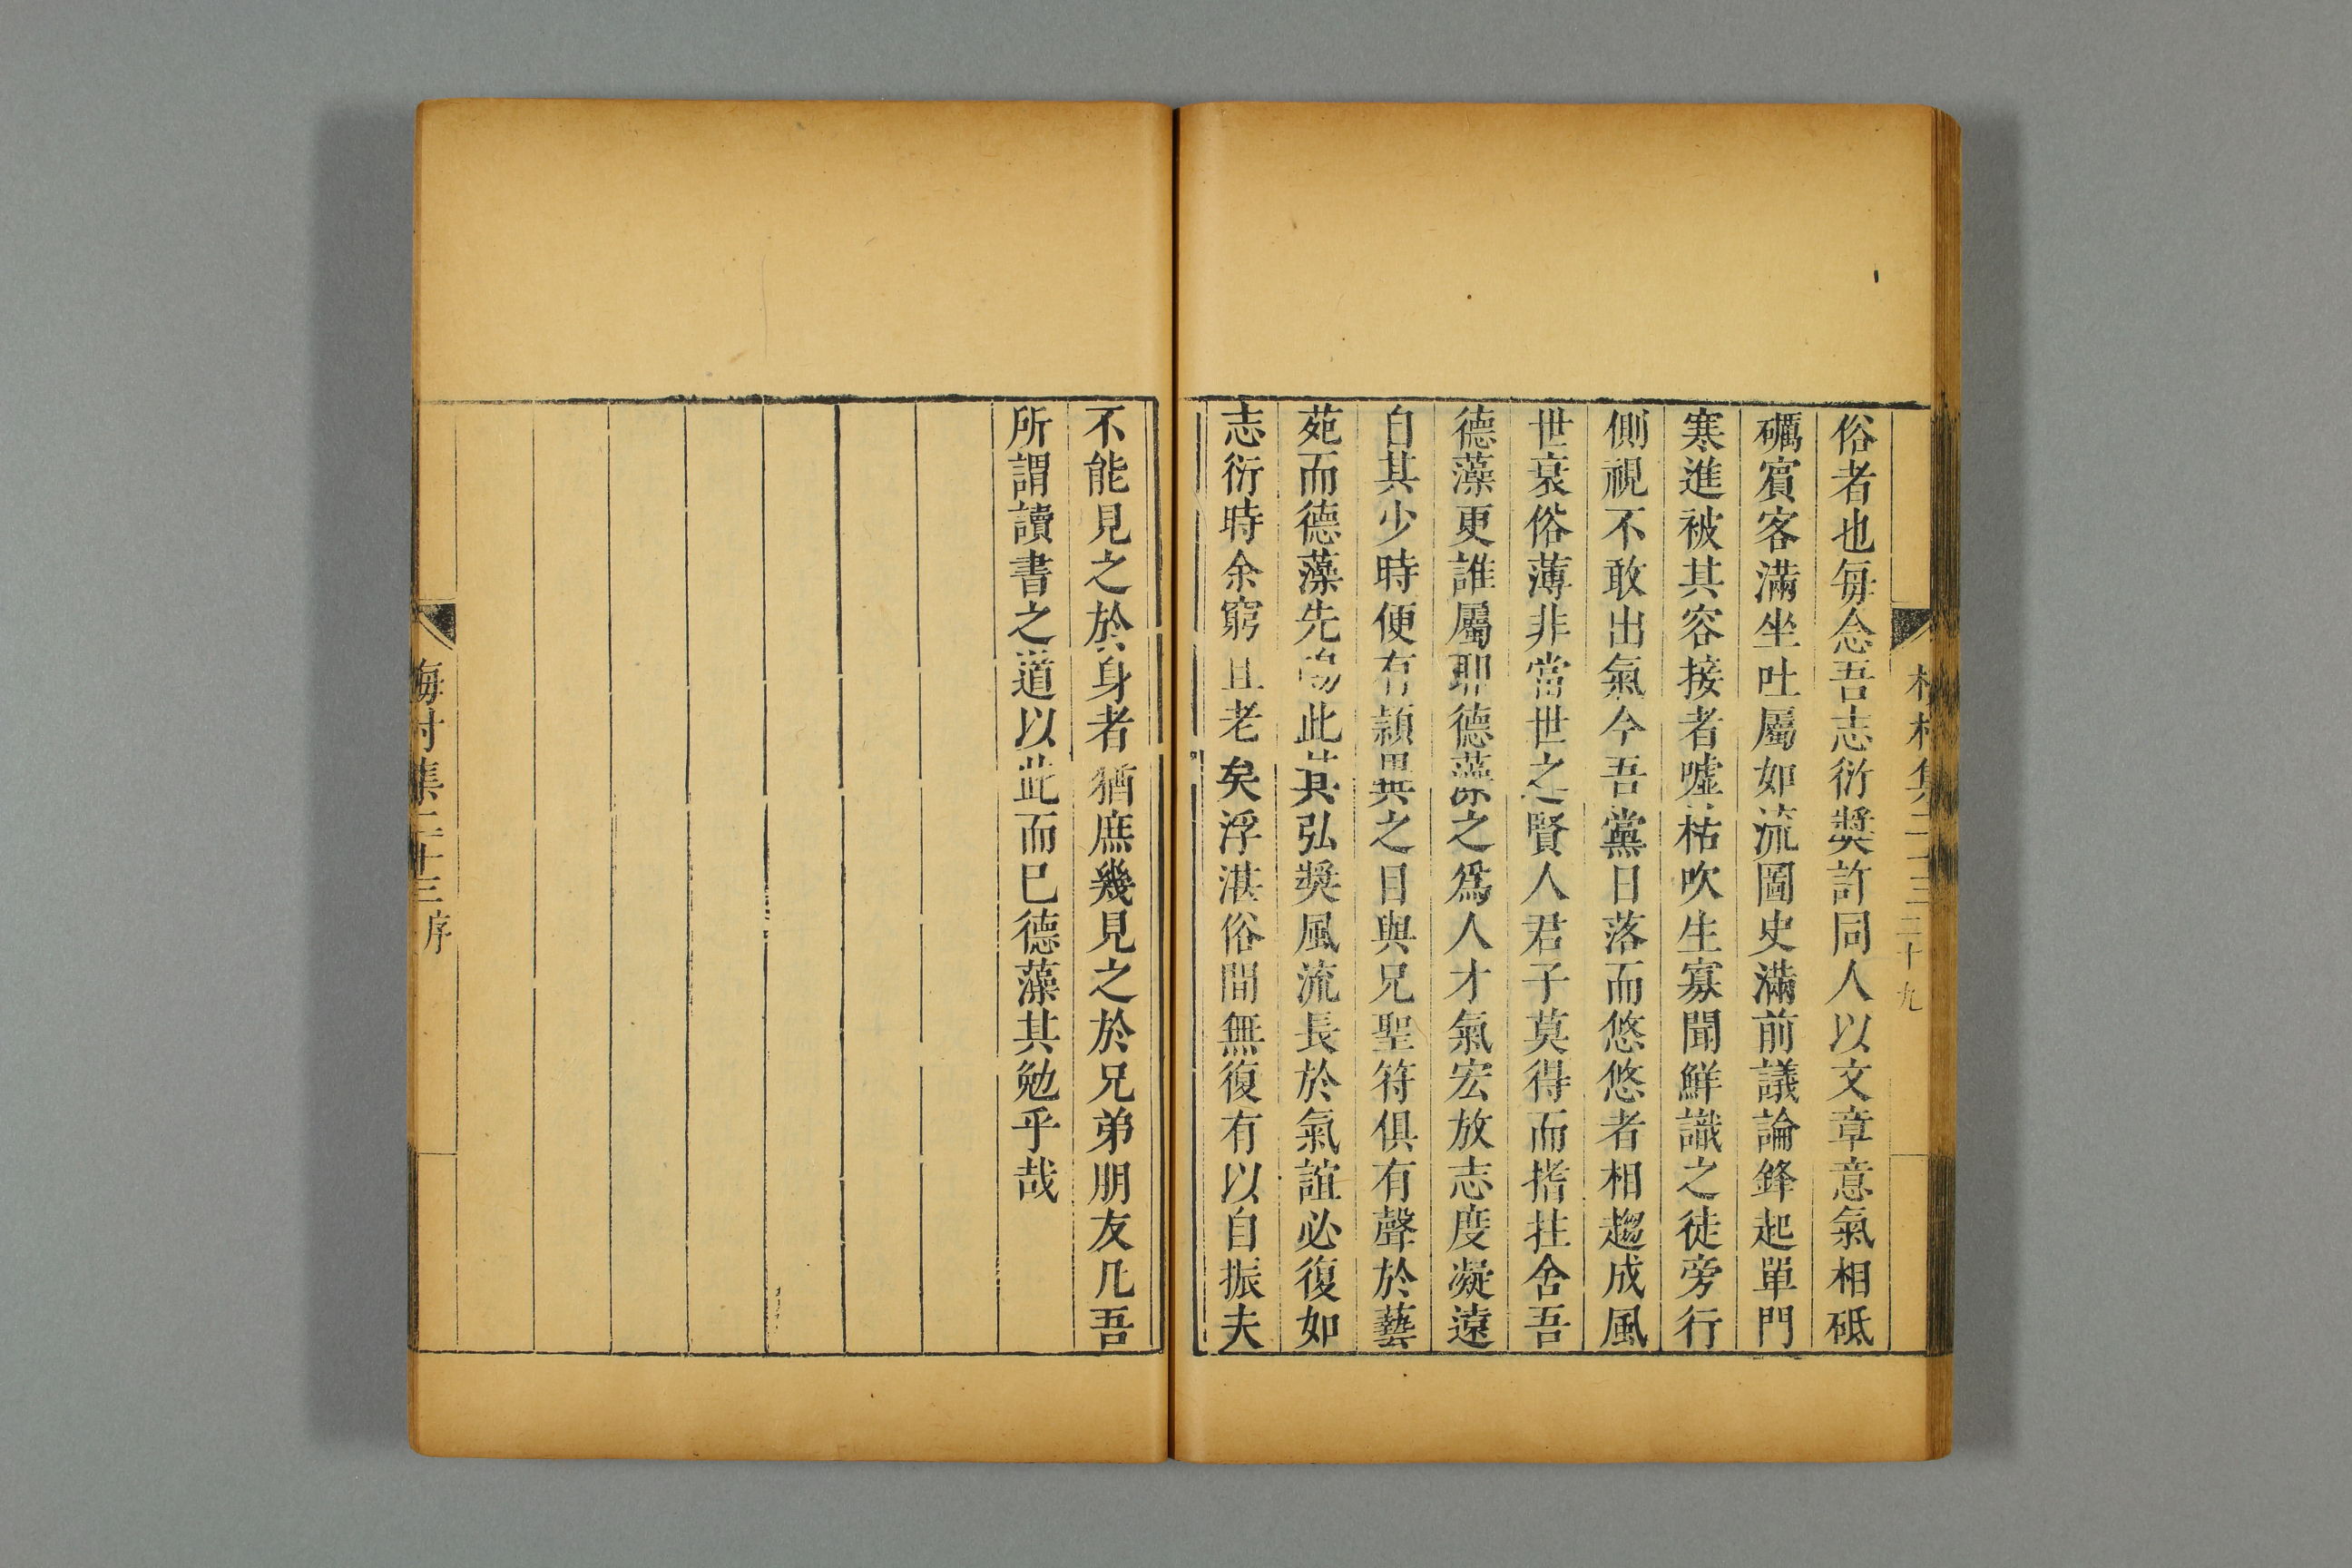 俗者也每念吾志衍奬許同人以文章意氣相砥
礪賓客滿坐吐屬如流圖史滿前議論鋒起單門
寒進被其容接者噓枯吹生寡聞鮮識之徒旁行
側視不敢出氣今吾黨日落而悠悠者相趨成風
世衰俗薄非當世之賢人君子莫得而指拄舍吾
德藻更誰屬耶德藻之爲人才氣宏放志度凝遠
自其少時便有穎異之目與兄聖符俱有聲於藝
苑而德藻先此其弘奬風流長於氣誼必復如
志衍時余窮且老矣浮湛俗間無復有以自振夫
不能見之於身者猶庶幾見之於兄弟朋友凡吾
所謂讀書之道以此而已德藻其勉乎哉
梅村集二十三 序